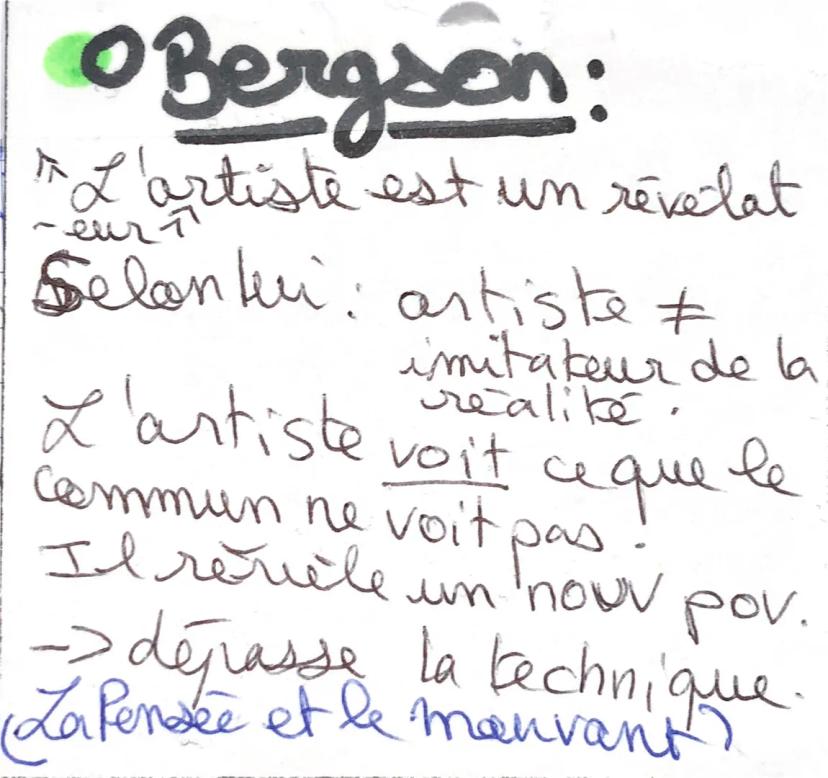 O Bergson :
"L'artiste est un révélat
-eur"
Selon lui : artiste ≠
imitateur de la
réalité.
L'artiste voit ce que le
commun ne voit pas.
Il révèle un nouv pov.
-> dépasse la technique.
(La Pensée et le mouvant)